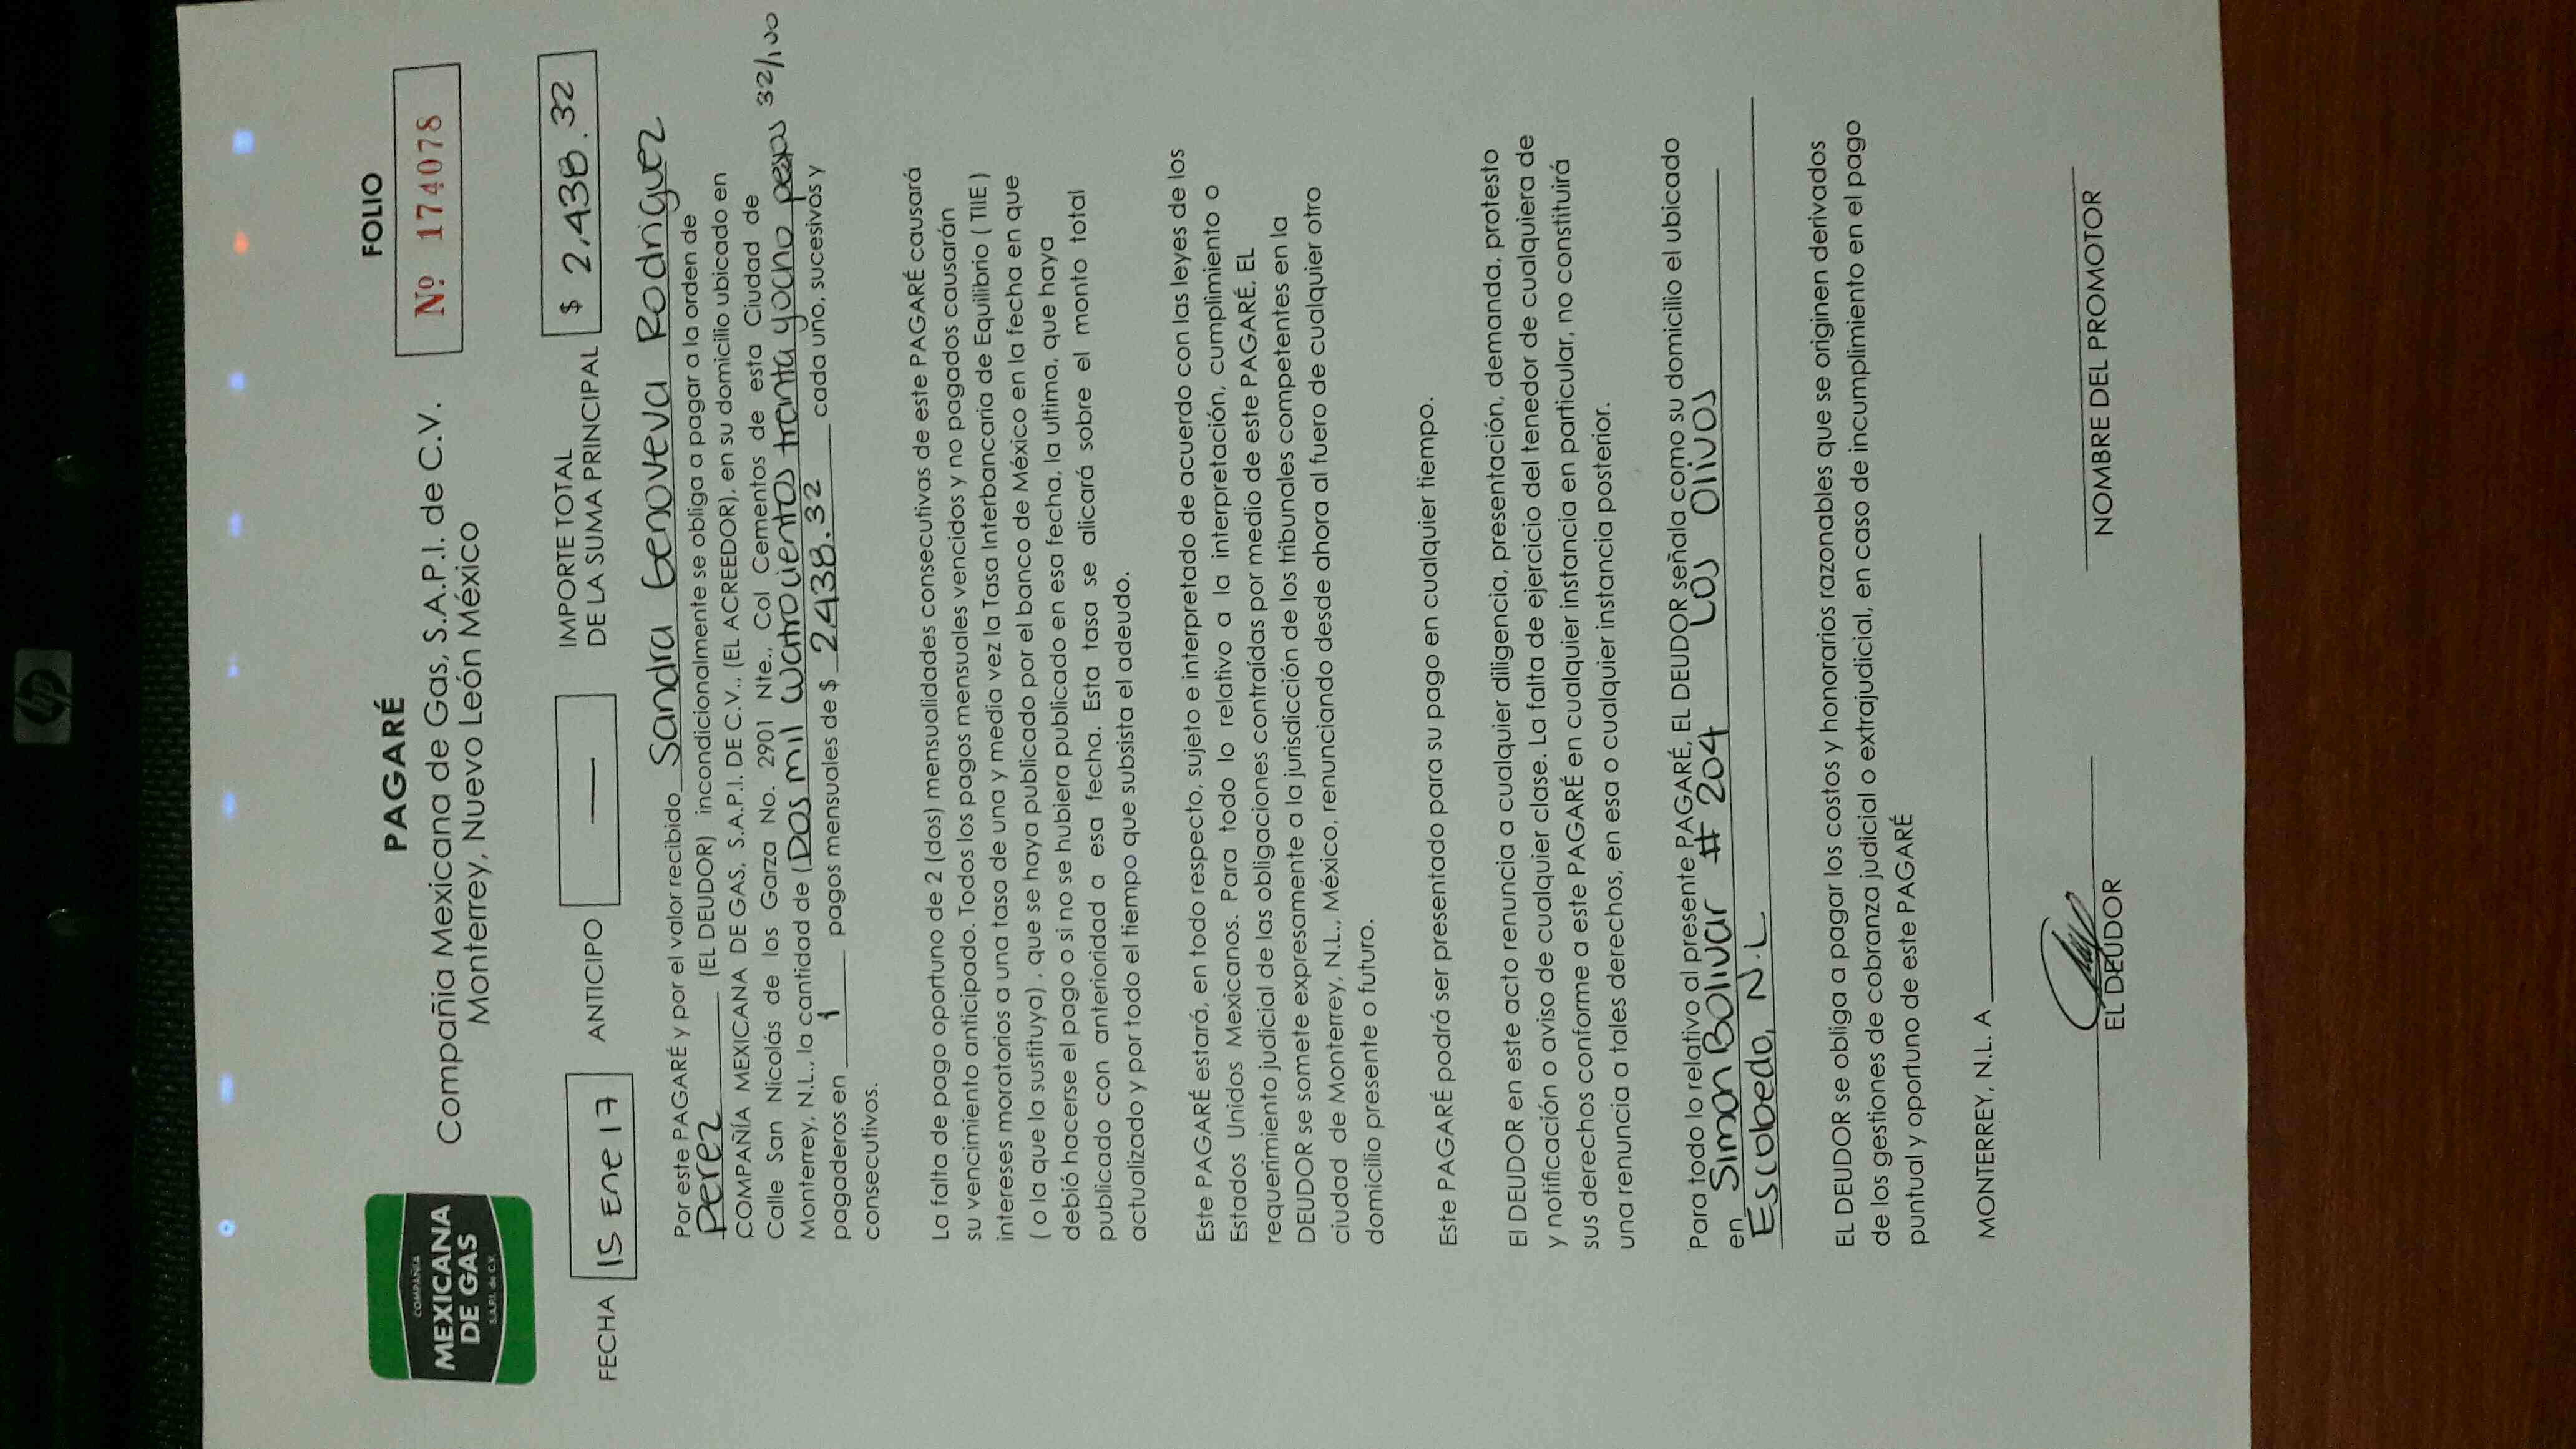 COMPAÑÍA
MEXICANA
DE GAS
S.A.P.I. de C.V.
PAGARÉ
Compañia Mexicana de Gas, S.A.P.I. de C.V.
Monterrey, Nuevo León México
FOLIO
Nº 174078
FECHA 15 Ene 17 ANTICIPO — IMPORTE TOTAL
DE LA SUMA PRINCIPAL $ 2,438.32
Por este PAGARÉ y por el valor recibido Sandra Genoveva Rodriguez
Perez (EL DEUDOR) incondicionalmente se obliga a pagar a la orden de
COMPAÑÍA MEXICANA DE GAS, S.A.P.I. DE C.V., (EL ACREEDOR), en su domicilio ubicado en
Calle San Nicolás de los Garza No. 2901 Nte., Col Cementos de esta Ciudad de
Monterrey, N.L., la cantidad de (Dos mil cuatrocientos treinta y ocho pesos 32/100
pagaderos en 1 pagos mensuales de $ 2438.32 cada uno, sucesivos y
consecutivos.
La falta de pago oportuno de 2 (dos) mensualidades consecutivas de este PAGARÉ causará
su vencimiento anticipado. Todos los pagos mensuales vencidos y no pagados causarán
intereses moratorios a una tasa de una y media vez la Tasa Interbancaria de Equilibrio ( TIIE )
( o la que la sustituya) , que se haya publicado por el banco de México en la fecha en que
debió hacerse el pago o si no se hubiera publicado en esa fecha, la ultima, que haya
publicado con anterioridad a esa fecha. Esta tasa se alicará sobre el monto total
actualizado y por todo el tiempo que subsista el adeudo.
Este PAGARÉ estará, en todo respecto, sujeto e interpretado de acuerdo con las leyes de los
Estados Unidos Mexicanos. Para todo lo relativo a la interpretación, cumplimiento o
requerimiento judicial de las obligaciones contraídas por medio de este PAGARÉ, EL
DEUDOR se somete expresamente a la jurisdicción de los tribunales competentes en la
ciudad de Monterrey, N.L., México, renunciando desde ahora al fuero de cualquier otro
domicilio presente o futuro.
Este PAGARÉ podrá ser presentado para su pago en cualquier tiempo.
El DEUDOR en este acto renuncia a cualquier diligencia, presentación, demanda, protesto
y notificación o aviso de cualquier clase. La falta de ejercicio del tenedor de cualquiera de
sus derechos conforme a este PAGARÉ en cualquier instancia en particular, no constituirá
una renuncia a tales derechos, en esa o cualquier instancia posterior.
Para todo lo relativo al presente PAGARÉ, EL DEUDOR señala como su domicilio el ubicado
en Simon Bolivar # 204 Los Olivos
Escobedo, N.L
EL DEUDOR se obliga a pagar los costos y honorarios razonables que se originen derivados
de los gestiones de cobranza judicial o extrajudicial, en caso de incumplimiento en el pago
puntual y oportuno de este PAGARÉ
MONTERREY, N.L. A
EL DEUDOR
NOMBRE DEL PROMOTOR
hp